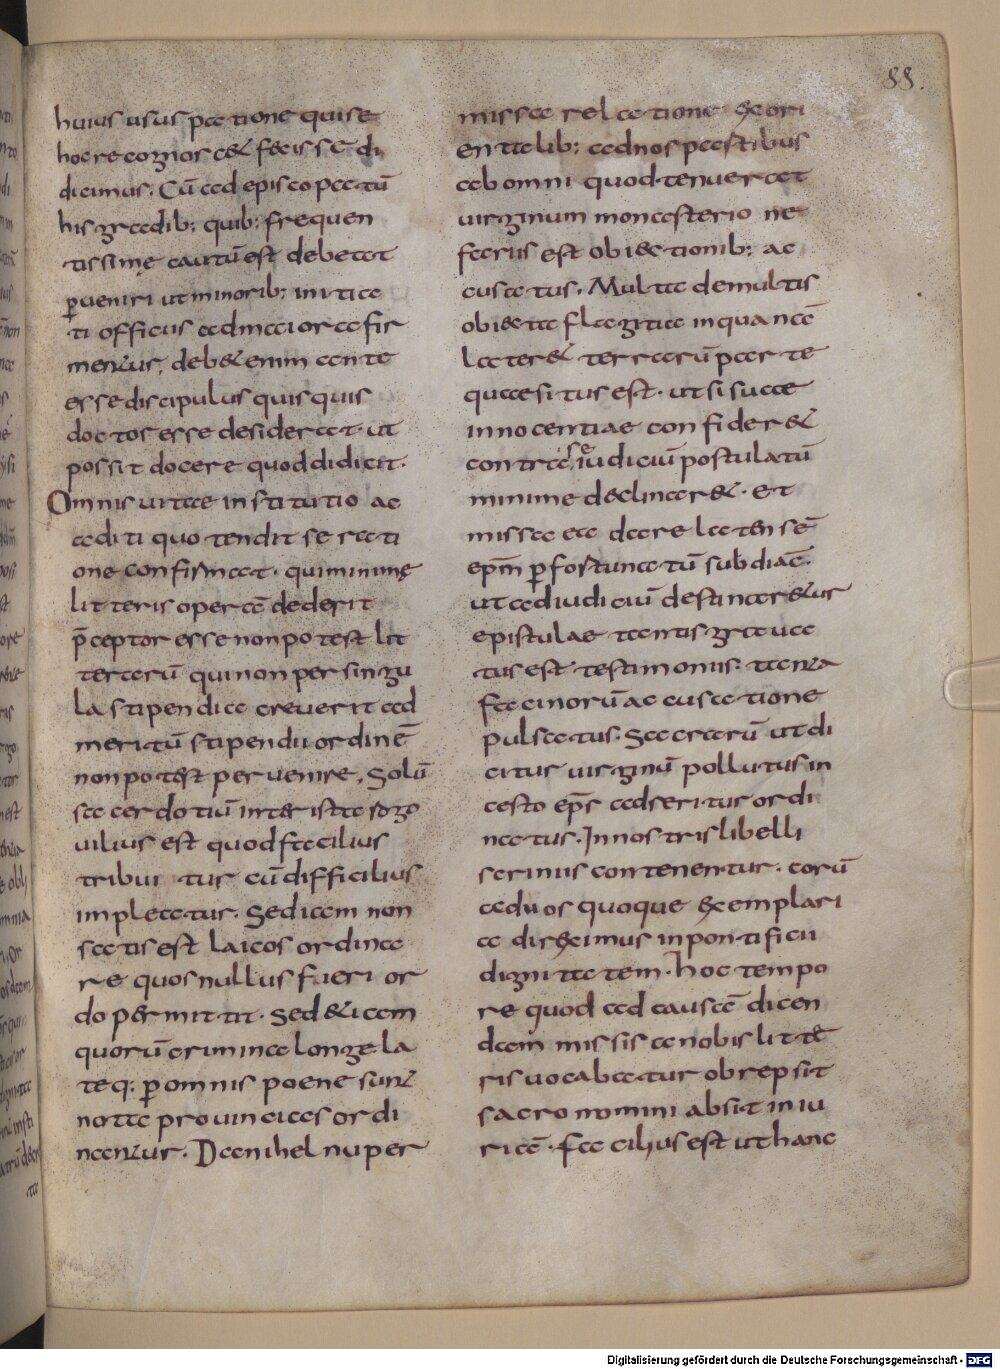 88.
huius usus patione qui se
hoc recognoscat fecisse di
dicimus; Cū ad episcopatū
his gradib; quib; frequen
tissimę cautū est debeat
ꝑueniri ut minorib; initia
ti officiis ad maiora fir
mentur, debet enim ante
esse discipulus quisquis
doctos esse desiderat. ut
possit docere quod didicit.
Omnis uitae institutio ac
ad iti quo tendit se rati
one confirmat. qui minimę
litteris operā dederit
p̄ceptor esse non potest lit
terarū qui non per singu
la stipendia creuerit ad
meritū stipendii ordinē
non potest peruenire. Solū
sacerdotiū inter ista rogo
uilius est quod facilius
tribui tur cū difficilius
impleatur. Sed iam non
satis est laicos ordina
re quos nullus fieri or
do permittit. sed etiam
quorū crimina longe la
teq; ꝑ omnis poene sunt
nota prouincias ordi
nantur. Danihel nuper
missa relatione ex ori
entalib; ad nos partibus
ab omni quod tenuerat
uirginum monasterio ne
fariis est obiectionib; ac
cusatus. Multa de multis
obiecta flagitia in quā nā
lateret terrarū parte
quaesitus est. ut si suae
innocentiae confideret
contra se iudiciū postulatū
minime declinaret. Et
missa ad arelatensē
ep̄m ꝑ fortunatū subdiac̄.
ut ad iudiciū destinaretur
epistulae tantis graua
tus est testimoniis. tanta
facinorū accusatione
pulsatus. sacrarū ut di
citur uirginū pollutus in
cesto ep̄s adseritur ordi
natus. In nostris libelli
scriniis contenentur. corū
ad uos quoque exemplari
a direximus in pontificii
dignitatem. hoc tempo
re quod ad causā dicen
dam missis a nobis litte
ris uocabatur obrepsit
sacro nomini absit iniu
riā. facilius est ut hanc
Digitalisierung gefördert durch die Deutsche Forschungsgemeinschaft - DFG